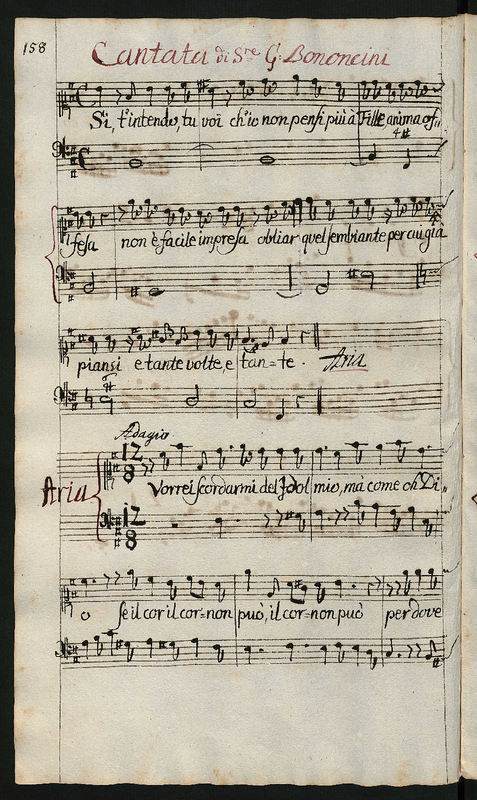 158
Cantata di S.re G: Bononcini
Si, t'intendo, tu voi ch'io non pensi più à Fille anima of=
4 #
fesa non è facile impresa obliar quel sembiante per cui già
piansi e tante volte, e tan=te. Aria
Adagio
12 8
Aria
Vorrei scordarmi del Idol mio, ma come oh Di=
12 8
o se il cor il cor=non può, il cor=non può per dove